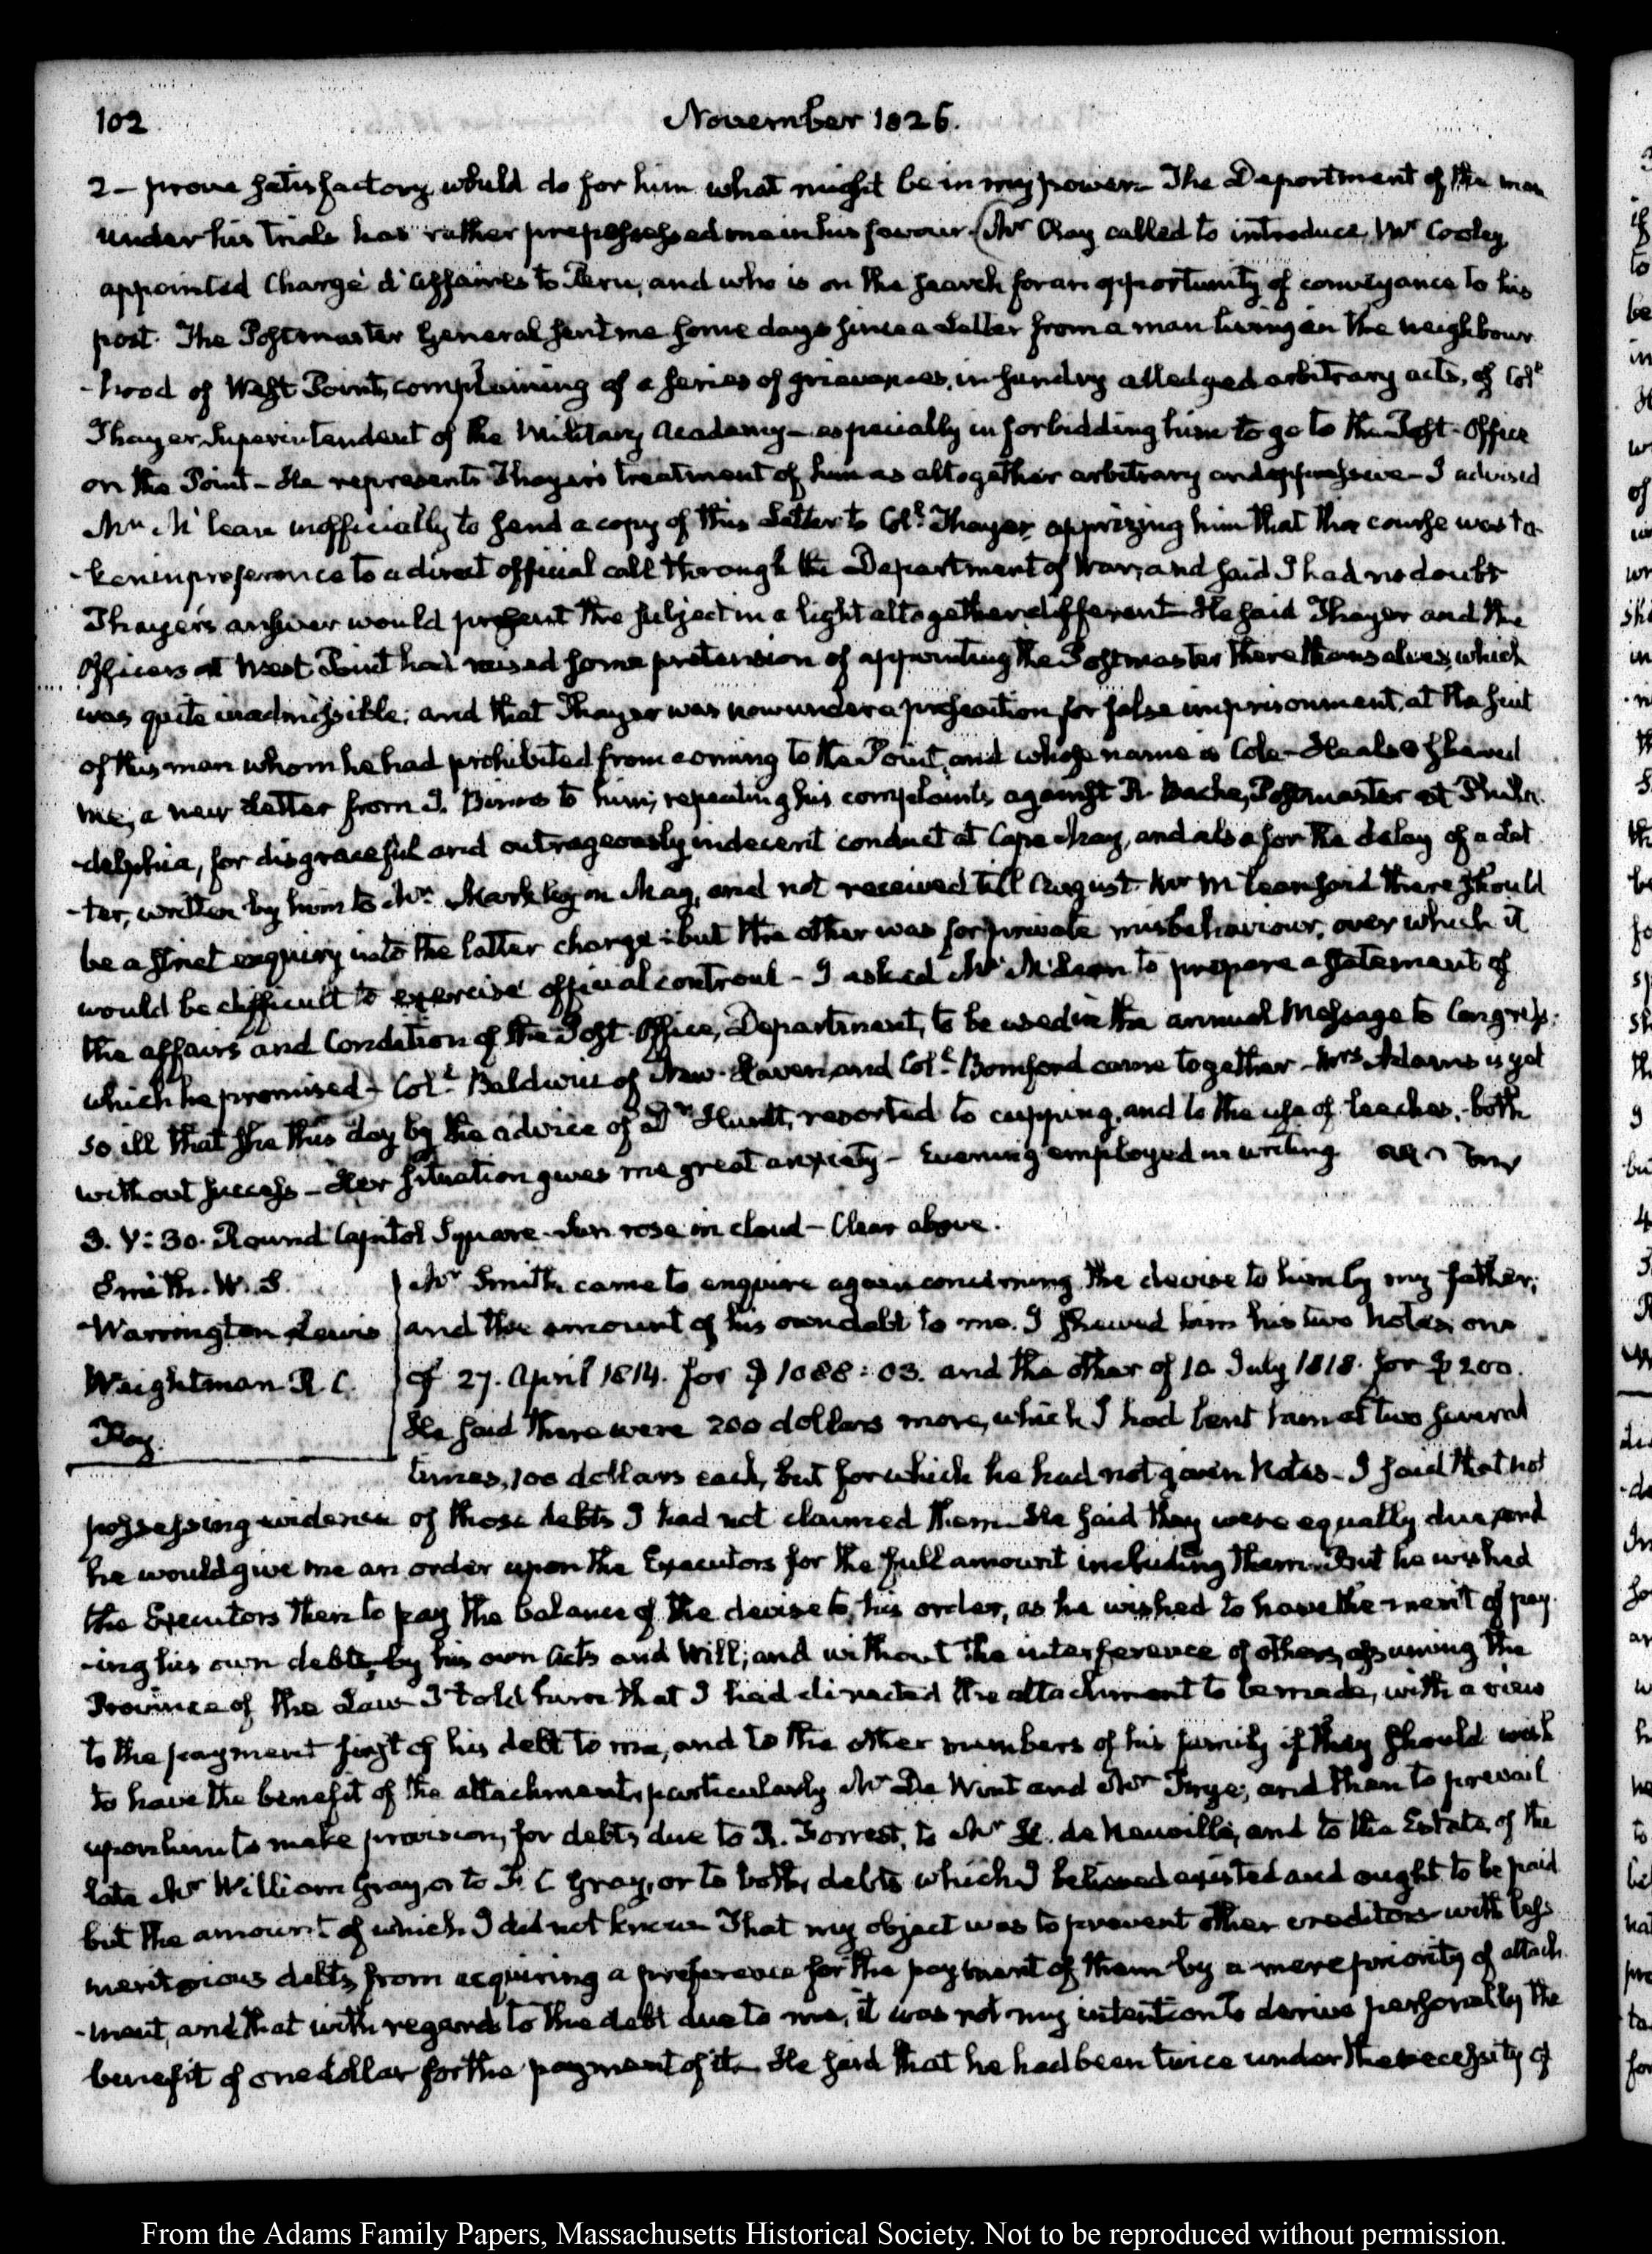 102
November 1826.
2 - prove satisfactory, would do for him what might be in my power. The Deportment of the man
under his trials has rather prepossessed me in his favour. (Mr Clay called to introduce Mr Cooley
appointed Chargé d'affaires to Peru, and who is on the search for an opportunity of conveyance to his
post. The Postmaster General sent me some days since a Letter from a man living in the neighbour
-hood of West Point, complaining of a series of grievances, in sundry alledged arbitrary acts, of Coll
Thayer Superintendent of the Military Academy - especially in forbidding him to go to the Post-Office
on the Point - He represents Thayer's treatment of him as altogether arbitrary and oppressive - I advised
Mr McLean inofficially to send a copy of this Letter to Coll Thayer, apprizing him that this course was ta
-ken in preference to a direct official call through the Department of War, and said I had no doubt
Thayer's answer would present the subject in a light altogether different - He said Thayer and the
Officers at West Point had raised some pretension of appointing the Postmaster there themselves, which
was quite inadmissible; and that Thayer was now under a prosecution for false imprisonment, at the suit
of this man whom he had prohibited from coming to the Point, and whose name is Cole - He also shewed
me, a new Letter from J. Binns to him, repeating his complaints against R. Bache, Postmaster at Phila
-delphia, for disgraceful and outrageously indecent conduct at Cape May, and also for the delay of a Let
-ter, written by him to Mr Markley in May, and not received till August. Mr McLean said there should
be a strict enquiry into the latter charge; but the other was for private misbehaviour, over which it
would be difficult to exercise official controul - I asked Mr McLean to prepare a statement of
the affairs and Condition of the Post-Office, Department, to be used in the annual Message to Congress;
which he promised - Coll Baldwin of New-Haven, and Coll Bomford came together - Mrs Adams is yet
so ill that she this day by the advice of Dr Huntt, resorted to cupping, and to the use of leeches, both
without success - Her situation gives me great anxiety - Evening employed in writing
3. V:30. Round Capitol Square - Sun rose in cloud - Clear above.
Smith. W. S.
Warrington Lewis
Weightman R. C.
Mr Smith came to enquire again concerning the devise to him by my father;
and the amount of his own debt to me. I shewed him his two notes; one
of 27. April 1814. for $1088:03. and the other of 10 July 1818. for $200.
He said there were 200 dollars more, which I had lent him at two several
times, 100 dollars each, but for which he had not given Notes - I said that not
possessing evidence of those debts I had not claimed them - He said they were equally due, and
he would give me an order upon the Executors for the full amount including them - But he wished
the Executors then to pay the balance of the devise to his order, as he wished to have the merit of pay
-ing his own debts, by his own acts and Will; and without the interference of others, assuming the
Province of the Law - I told him that I had directed the attachment to be made, with a view
to the payment first of his debt to me, and to the other members of his family if they should wish
to have the benefit of the attachment, particularly Mr De Wint and Mr Frye; and then to prevail
upon him to make provision, for debts due to R. Forrest, to Mr H. de Neuville, and to the Estate, of the
late Mr William Gray, or to F. C Gray, or to both, debts which I believed existed and ought to be paid
but the amount of which I did not know - That my object was to prevent other creditors with less
meritorious debts, from acquiring a preference for the payment of them by a mere priority of attach
-ment, and that with regard to the debt due to me, it was not my intention to derive personally the
benefit of one dollar for the payment of it - He said that he had been twice under the necessity of
From the Adams Family Papers, Massachusetts Historical Society. Not to be reproduced without permission.